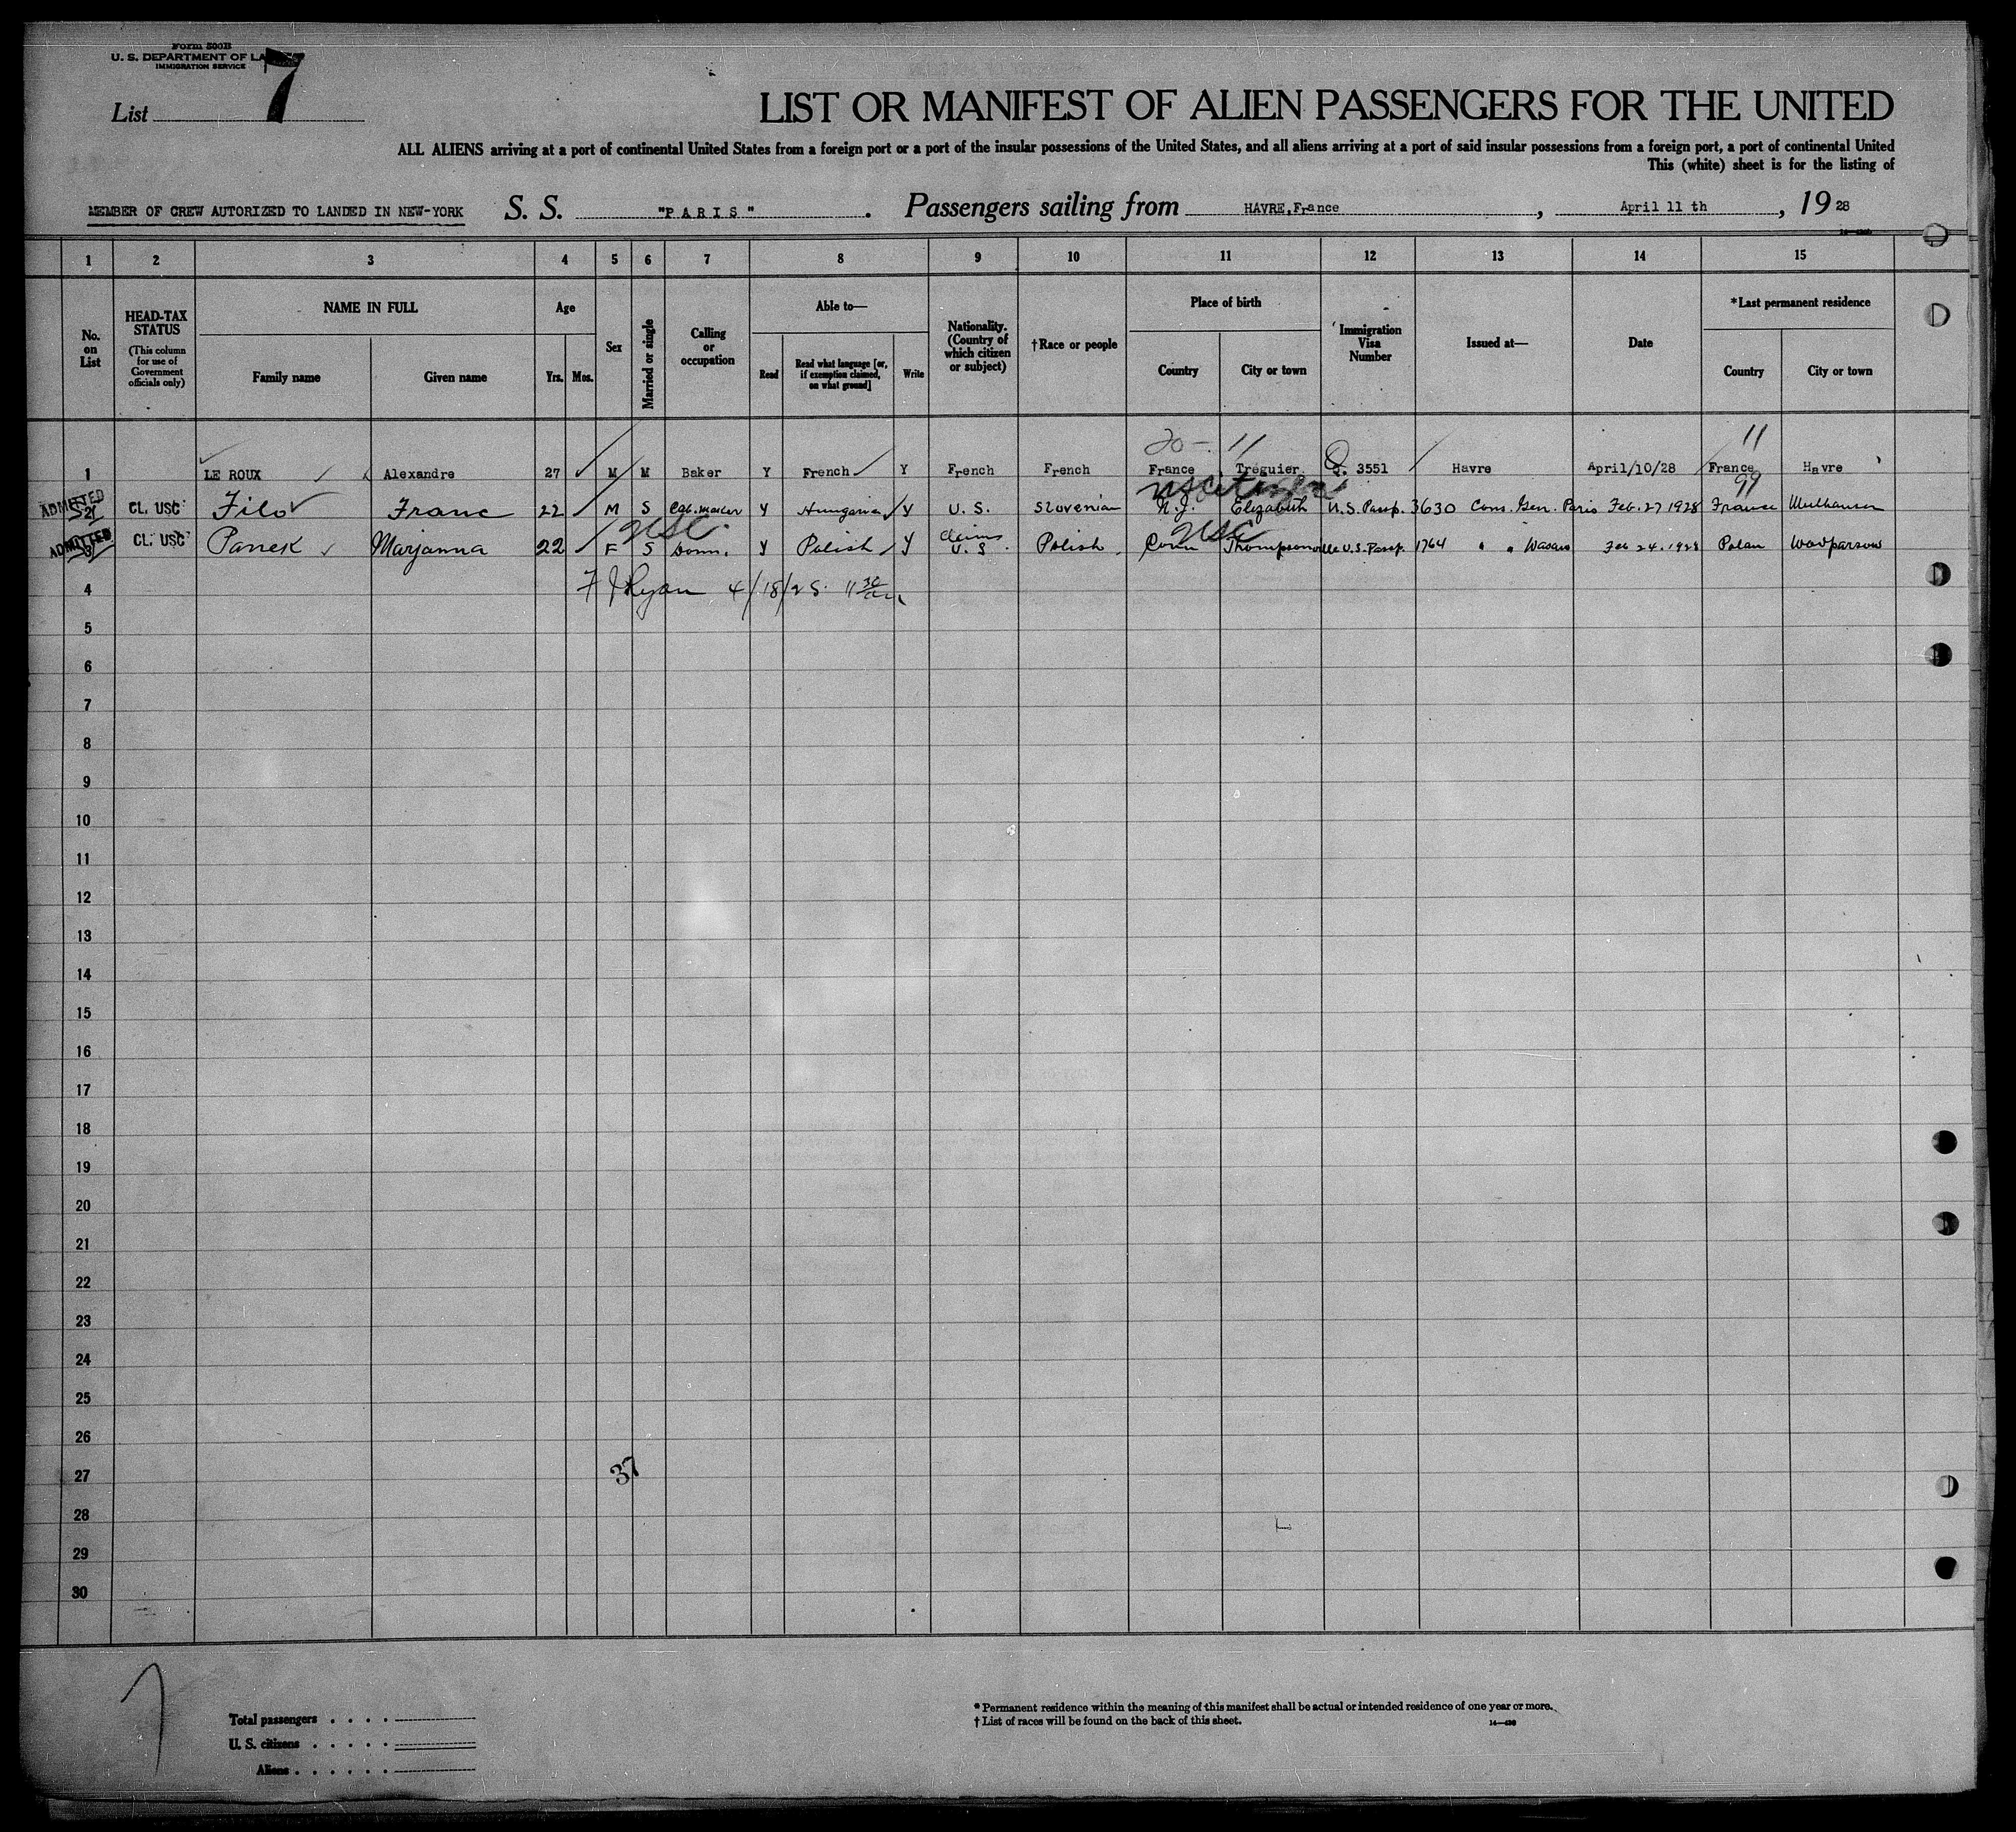 Form 500B
U. S. DEPARTMENT OF LA
IMMIGRATION SERVICE
List 7
LIST OR MANIFEST OF ALIEN PASSENGERS FOR THE UNITED
ALL ALIENS arriving at a port of continental United States from a foreign port or a port of the insular possessions of the United States, and all aliens arriving at a port of said insular possessions from a foreign port, a port of continental United
This (white) sheet is for the listing of
MEMBER OF CREW AUTORIZED TO LANDED IN NEW-YORK S. S. "PARIS". Passengers sailing from HAVRE,France, April 11 th, 1928
1 2 3 4 5 6 7 8 9 10 11 12 13 14 15
No. on List
HEAD-TAX STATUS
(This column for use of Government officials only)
NAME IN FULL
Family name
Given name
Age
Yrs.
Mos.
Sex
Married or single
Calling or occupation
Able to—
Read
Read what language [or, if exemption claimed, on what ground]
Write
Nationality. (Country of which citizen or subject)
†Race or people
Place of birth
Country
City or town
Immigration Visa Number
Issued at—
Date
*Last permanent residence
Country
City or town
20- 11 11
1 LE ROUX Alexandre 27 M M Baker Y French Y French French France Treguier Q. 3551 Havre April/10/28 France Havre
US Citizen 99
ADMITTED 2 CL. USC Filo Franc 22 M S Cab. maker Y Hungarian Y U. S. Slovenian N.J. Elizabeth U.S. Passp. 3630 Cons. Gen. Paris Feb. 27 1928 France Mulhausen
USC USC
ADMITTED 3 CL. USC Panek Marjanna 22 F S Dom. Y Polish Y claims U. S. Polish Conn Thompsonville U.S. Passp. 1764 " " Wasaw Feb 24. 1928 Polan
4 F J Ryan 4/18/28 11 30 am
5
6
7
8
9
10
11
12
13
14
15
16
17
18
19
20
21
22
23
24
25
26
27 37
28
29
30
Total passengers . . . .
U. S. citizens . . . . .
Aliens . . . . . .
* Permanent residence within the meaning of this manifest shall be actual or intended residence of one year or more.
† List of races will be found on the back of this sheet.